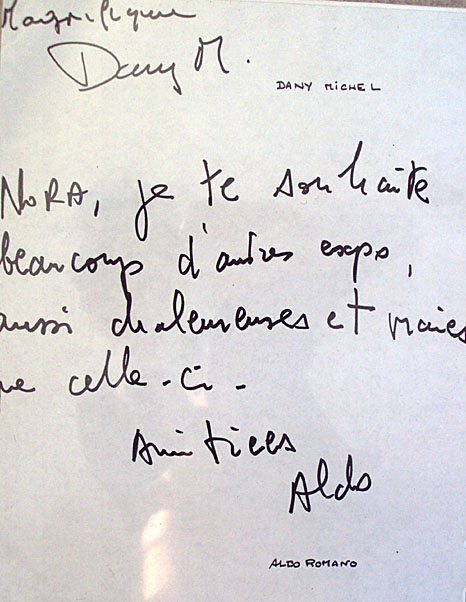 Magnifique
Dany M.
DANY MICHEL
NORA, je te souhaite
beaucoup d'autres expo,
aussi chaleureuses et vraies
que celle-ci-
Amitiées
Aldo
ALDO ROMANO